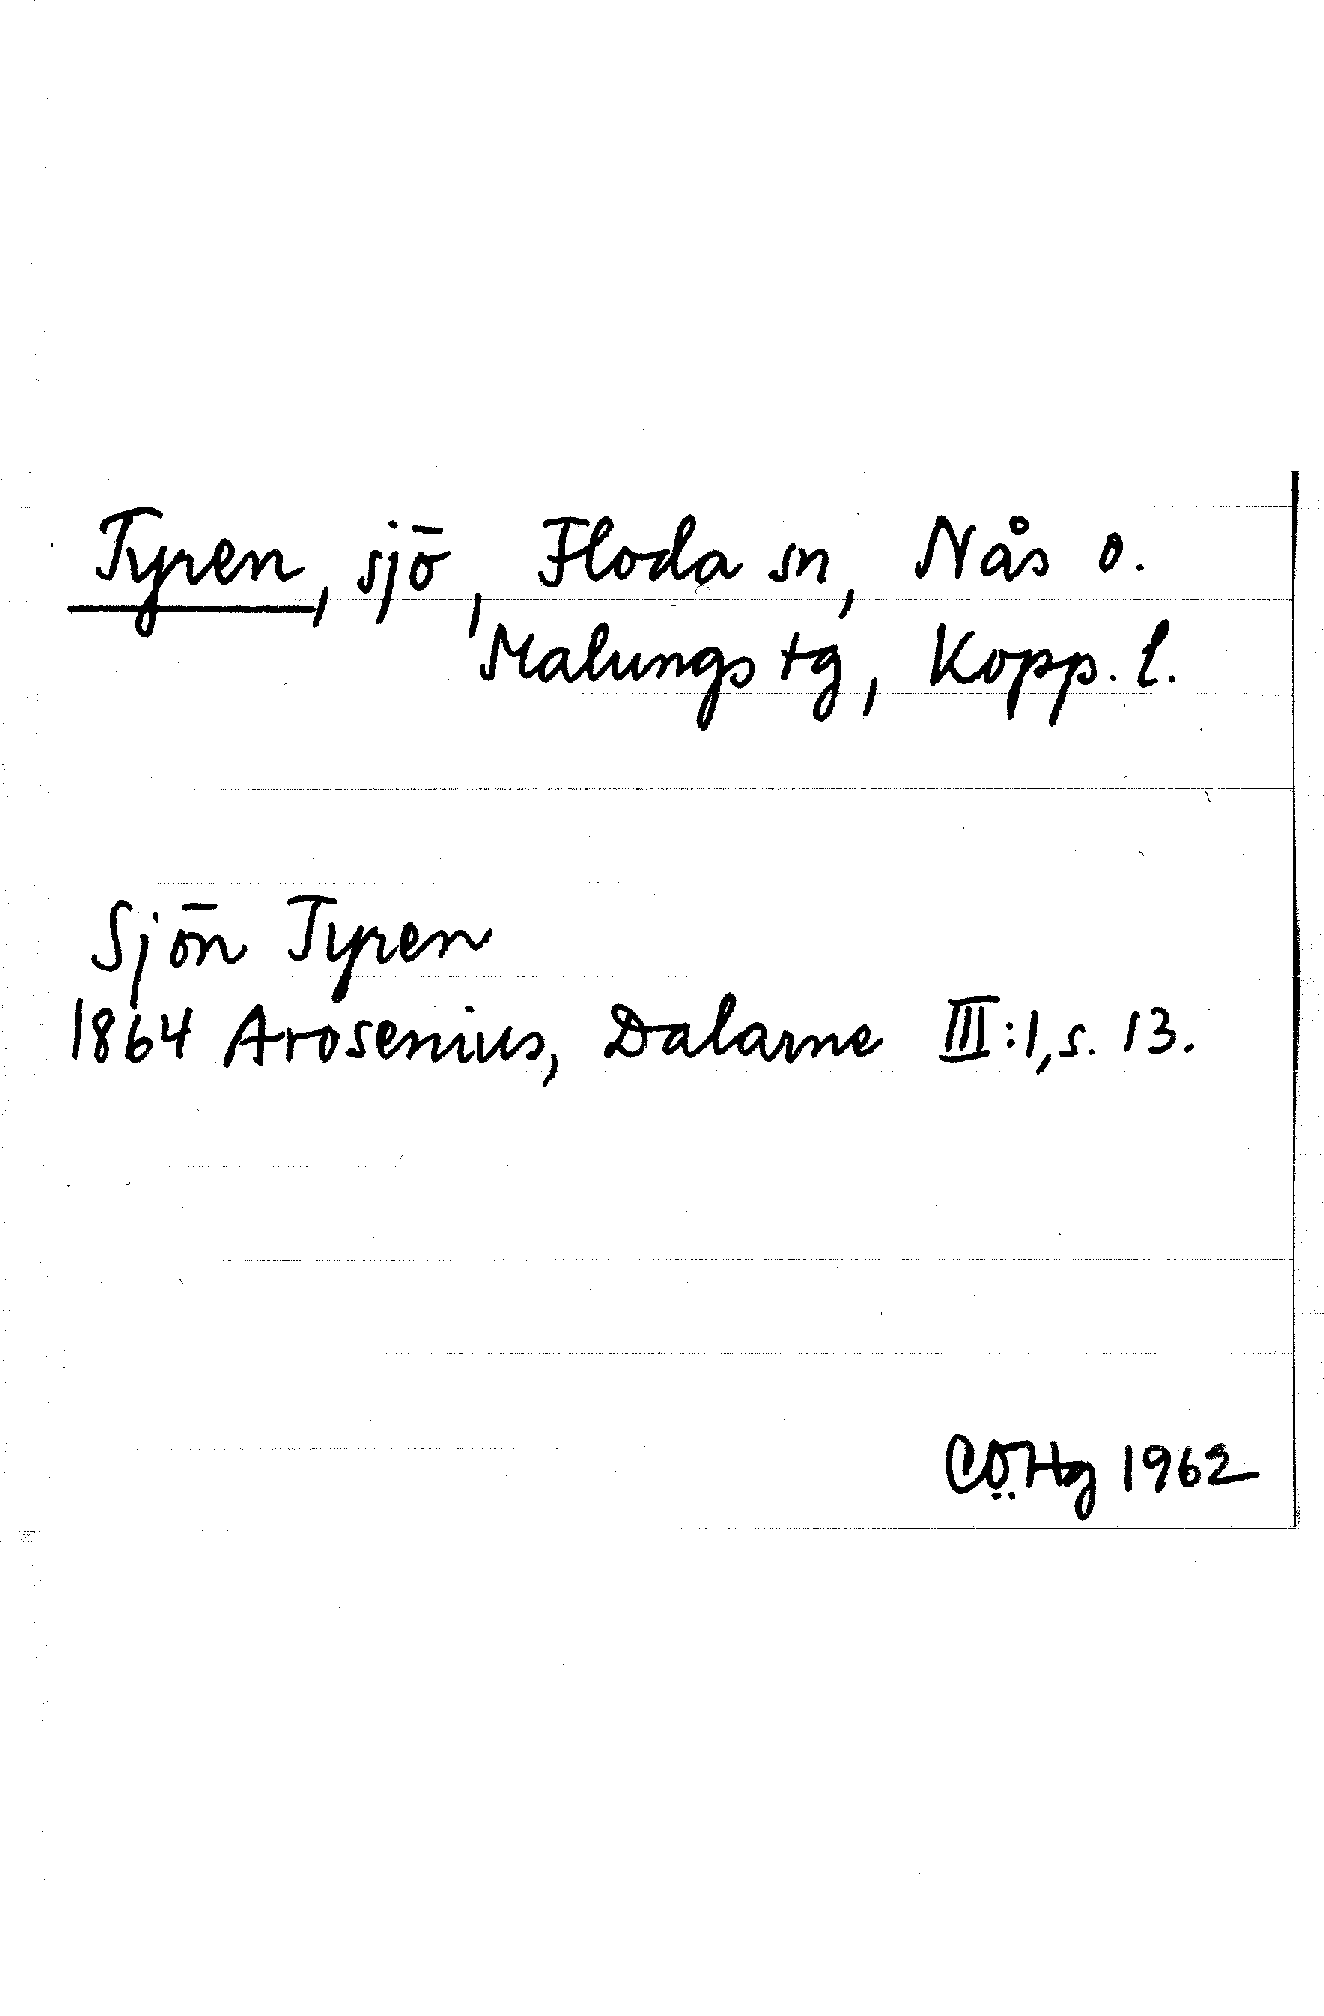 Tyren, sjö, Floda sn, Nås o.
Malungs tg, Kopp. l.
Sjön Tyren
1864 Arosenius, Dalarne III:1, s. 13.
CÖHg 1962